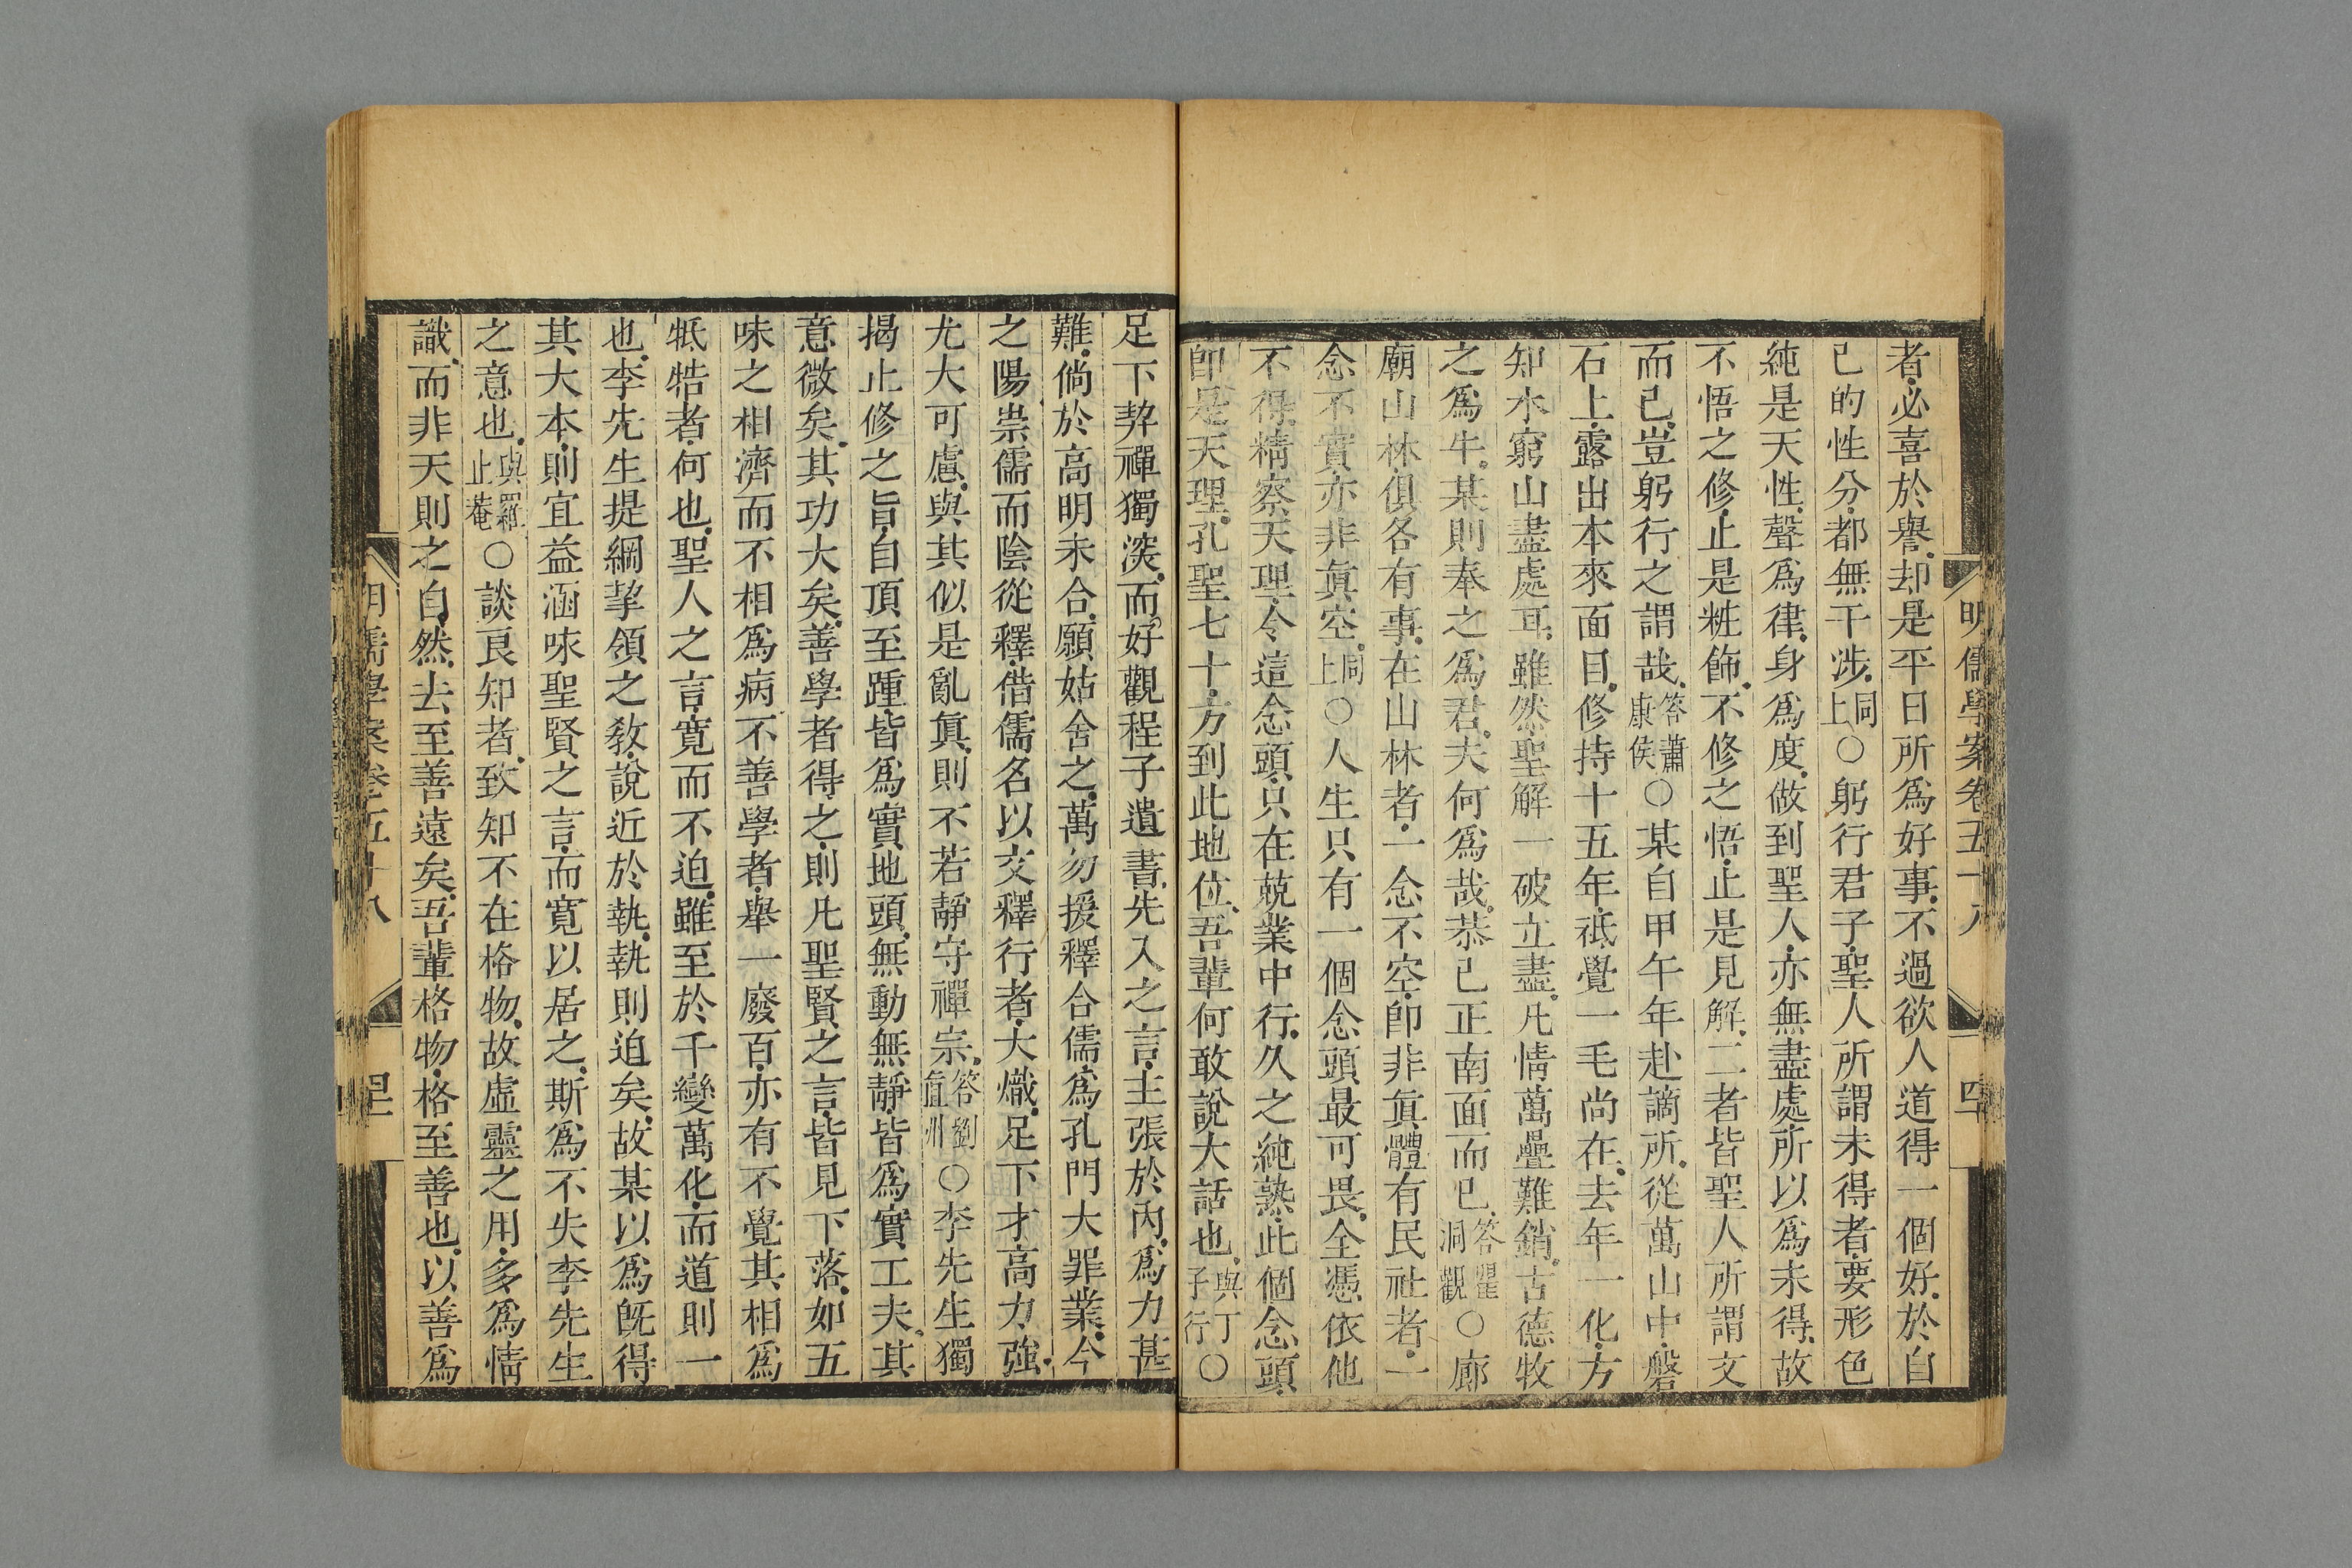 明儒學案卷五十八
四
者必喜於譽却是平日所爲好事不過欲人道得一個好於自
己的性分都無干涉同上○躬行君子聖人所謂未得者要形色
純是天性聲爲律身爲度做到聖人亦無盡處所以爲未得故
不悟之修止是粧飾不修之悟止是見解二者皆聖人所謂文
而已豈躬行之謂哉答蕭康侯○某自甲午年赴謫所從萬山中磐
石上露出本來面目修持十五年祗覺一毛尚在去年一化方
知水窮山盡處耳雖然聖解一破立盡凡情萬疊難銷古德牧
之爲牛某則奉之爲君夫何爲哉恭己正南面而已答瞿洞觀○廊
廟山林俱各有事在山林者一念不空即非眞體有民社者一
念不實亦非眞空同上○人生只有一個念頭最可畏全憑依他
不得精察天理令這念頭只在兢業中行久之純熟此個念頭
即是天理孔聖七十方到此地位吾輩何敢說大話也與丁子行○
足下莾禪獨深而好觀程子遺書先入之言主張於內爲力甚
難倘於高明未合願姑舍之萬勿援釋合儒爲孔門大罪業今
之陽崇儒而陰從釋借儒名以文釋行者大熾足下才高力強
尤大可慮與其似是亂眞則不若靜守禪宗答劉直洲○李先生獨
揭止修之旨自頂至踵皆爲實地頭無動無靜皆爲實工夫其
意微矣其功大矣善學者得之則凡聖賢之言皆見下落如五
味之相濟而不相爲病不善學者舉一廢百亦有不覺其相爲
牴牾者何也聖人之言寛而不迫雖至於千變萬化而道則一
也李先生提綱挈領之敎說近於執執則迫矣故某以爲旣得
其大本則宜益涵咏聖賢之言而寛以居之斯爲不失李先生
之意也與羅止菴○談良知者致知不在格物故虛靈之用多爲情
識而非天則之自然去至善遠矣吾輩格物格至善也以善爲
明儒學案卷五十八